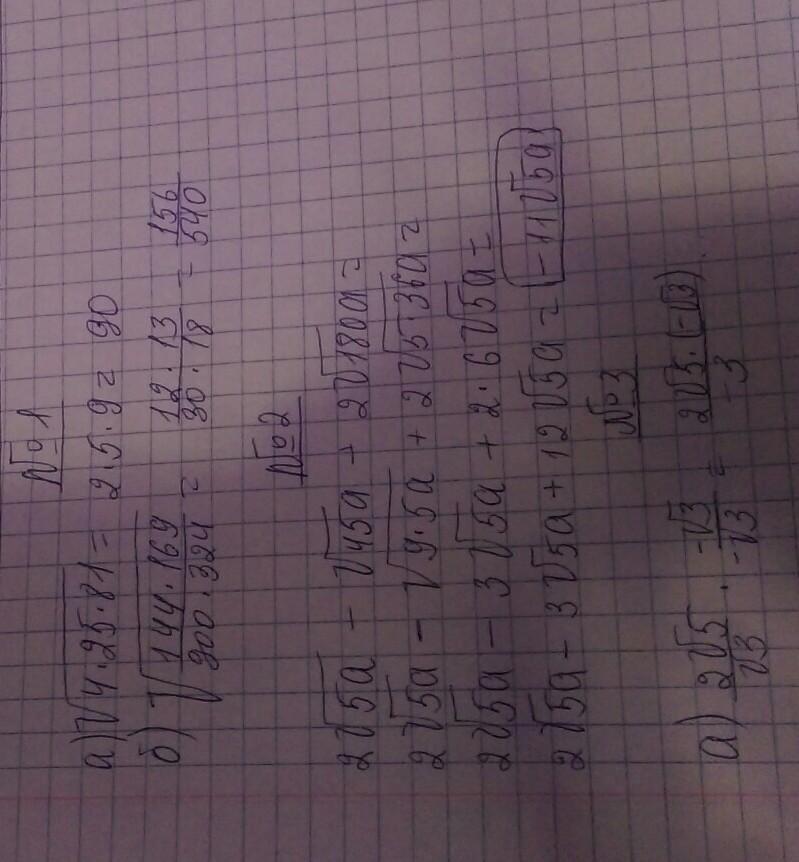 №1
а) √4·25·81 = 2·5·9 = 90
б) √(144·169)/(900·324) = (12·13)/(30·18) = 156/540
№2
2√5a − √45a + 2√180a =
2√5a − √9·5a + 2√5·36a =
2√5a − 3√5a + 2·6√5a =
2√5a − 3√5a + 12√5a = −11√5a
№3
а) 2√5/√3 · −√3/−√3 = 2√5·(−√3)/−3